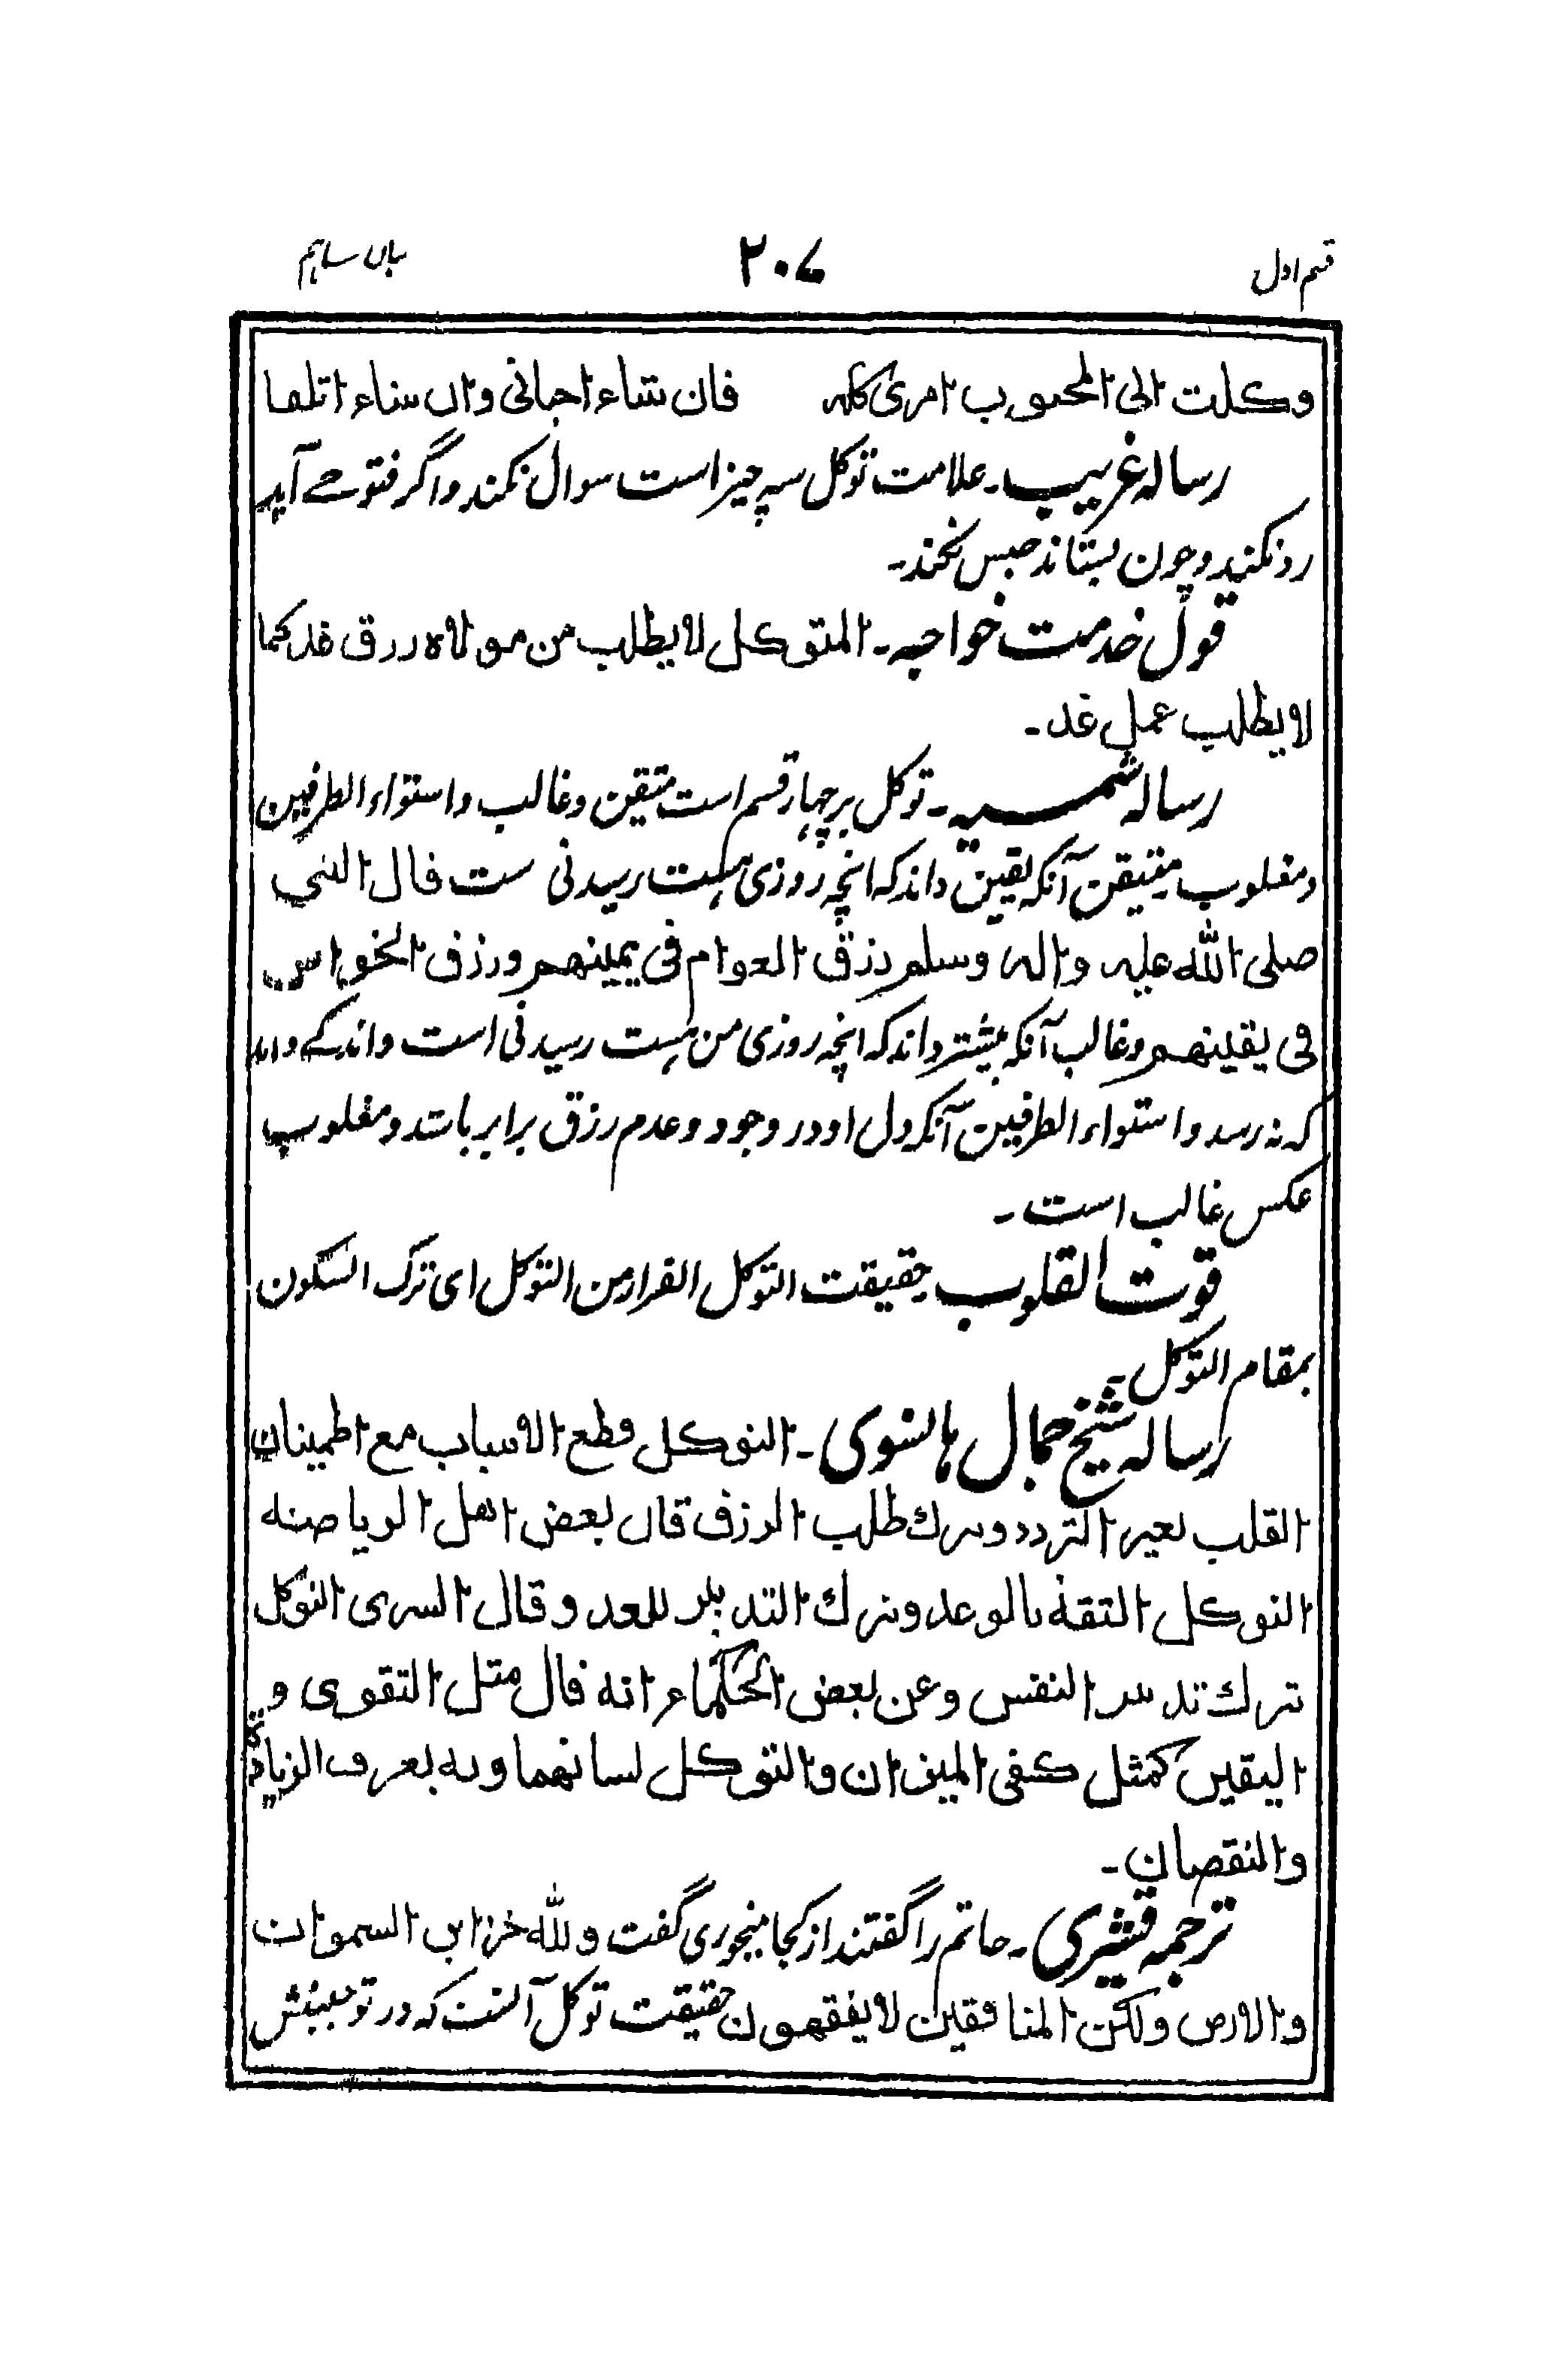 قسم اول
۲۰۷
وكلت الى المحبوب امرى كله فان شاء احيانى وان شاء اتلفا
رساله غریب۔ علامت توکل سہ چیز است سوال نکند و اگر فتوحے آید
رد نکند و چون بستاند حبس نکند۔
قول خدمت خواجہ۔ المتوكل لا يطلب من مولاه رزق غد كما
لا يطلب عمل غد۔
رسالہ شمسیہ۔ توکل بر چہار قسم است متقین و غالب و استواء الطرفین
و مغلوب متیقن آنکہ یقین داند کہ انچہ روزی ہست رسیدنی ست قال النبي
صلى الله عليه واله وسلم رزق العوام فى يمينهم ورزق الخواص
فى يقينهم و غالب آنکہ بیشتر داند کہ انچہ روزی من ہست رسیدنی است و اندکے داند
کہ نہ رسد و استواء الطرفین آنکہ دل او در وجود و عدم رزق برابر باشد و مغلوب
عکس غالب است۔
قوت القلوب حقیقت التوکل الفرار من التوکل ای ترک السکون
بمقام التوکل۔
رسالہ شیخ جمال ہانسوی۔ التوكل قطع الاسباب مع اطمينان
القلب بغير التردد وترك طلب الرزق قال بعض اهل الرياضة
التوكل الثقة بالوعد وترك التدبير للغد وقال السرى التوكل
ترك تدبير النفس وعن بعض الحكماء انه قال مثل التقوى و
اليقين كمثل كفى الميزان والتوكل لسانهما وبه يعرف الزيادة
والنقصان۔
ترجمہ قشیری۔ حاتم را گفتند از کجا میخوری گفت ولله خزاين السموات
والارض ولكن المنافقين لا يفقهون حقیقت توکل آنست کہ در تو جنبش